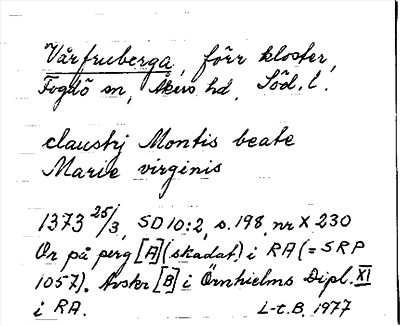 Vårfruberga, förr kloster,
Fogdö sn, Åkers hd, Söd. l.
claustrj Montis beate
Marie virginis
1373 25/3, SD 10:2, s. 198, nr X 230
Or på perg [A] (skadat) i RA (= SRP
1057). Avskr [B] i Örnhielms Dipl. XI
i RA. L-t. B. 1977